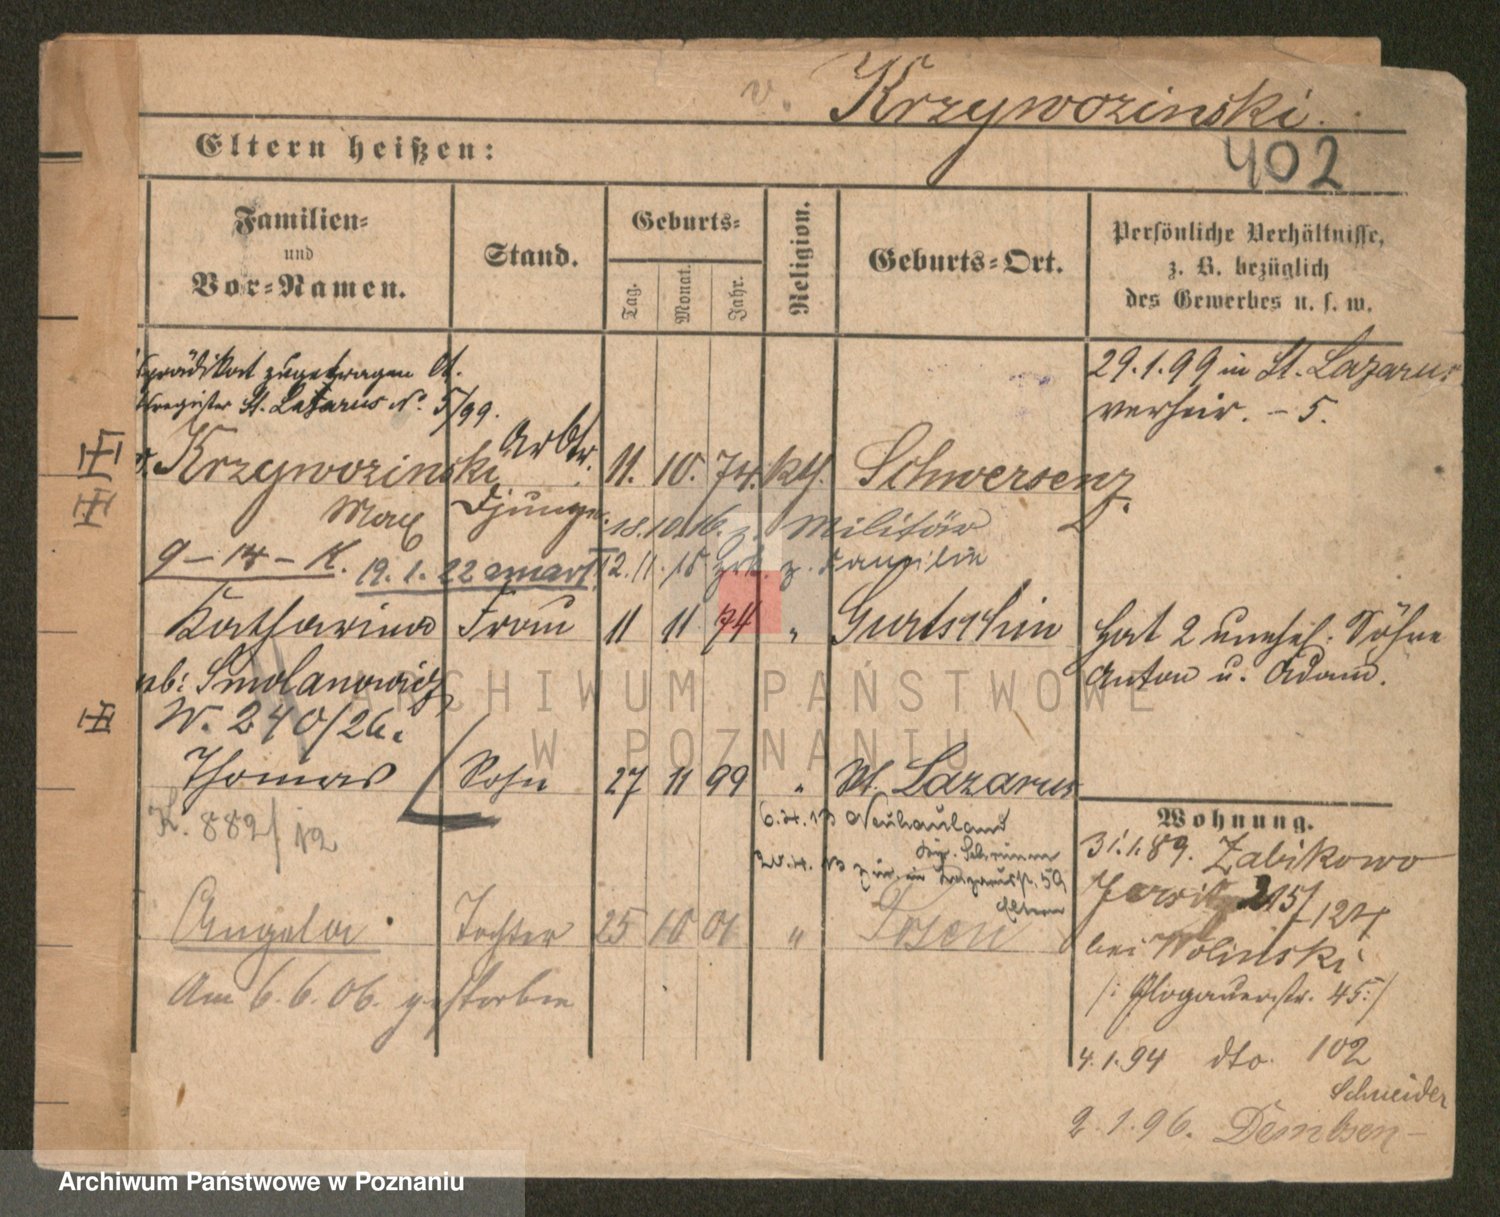 v. Krzywozinski.
402
Eltern heißen:
Familien=
und
Vor=Namen.
Stand.
Geburts=
Tag.
Monat.
Jahr.
Religion.
Geburts=Ort.
Persönliche Verhältnisse,
z. B. bezüglich
des Gewerbes u. s. w.
sprädikat zugetragen lt.
register St. Lazarus No. 5/99.
29.1.99 in St. Lazarus
verheir. - 5.
v. Krzywozinski Arbtr. 11. 10. 74. kth. Schwersenz
Max
18.10.16. z. Militär
19.1.22
12.11.18 zrk. z. Familie
Katharina Frau 11 11 74 " Gurtschin
Hat 2 unehel. Söhne
Anton u. Adam.
geb: Smolanowicz
W. 240/26.
Thomas Sohn 27 11 99 " St. Lazarus
K. 882/12
6.4.13 Neuhauland
Schrimm
zur. 59
Eltern
Wohnung.
31.1.89. Zabikowo
Jersitz 215/124
bei Wolinski
/: Glogauerstr. 45:/
Angela Tochter 25 10 01 " Posen
Am 6.6.06. gestorben
4.1.94 dto. 102
Schneider
2.1.96. Dembsen
ARCHIWUM PAŃSTWOWE
W POZNANIU
Archiwum Państwowe w Poznaniu